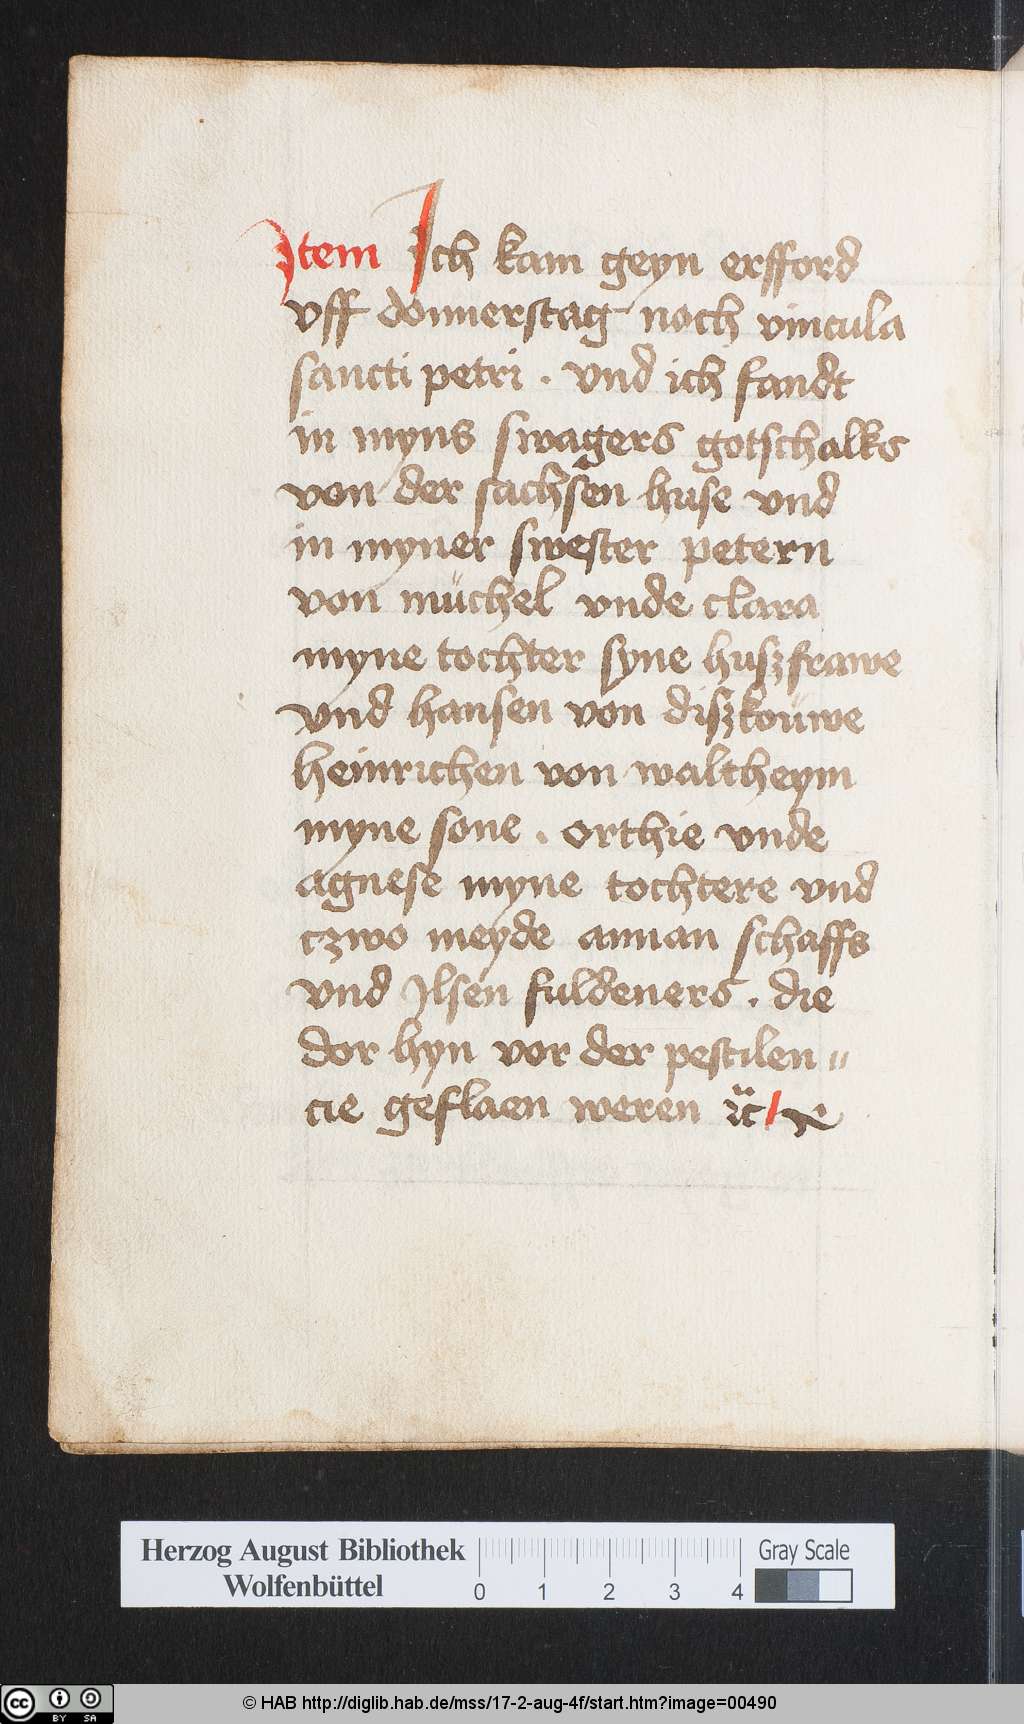 Item Ich kam geyn erfford
vff donnerstag noch vincula
sancti petri . vnd ich fandt
in myns swagers gotschalks
von der sachsen huse vnd
in myner swester petern
von müchel vnde clara
myne tochter syne huszfrawe
vnd hansen von diszkouwe
heinrichen von waltheym
myne sone . orthie vnde
agnese myne tochtere vnd
czwo meyde annan schaffs
vnd Ilsen fuldeners . die
dor hyn vor der pestilen
cie geflaen weren ꝛc
Herzog August Bibliothek
Wolfenbüttel
0 1 2 3 4
Gray Scale
cc BY SA
© HAB http://diglib.hab.de/mss/17-2-aug-4f/start.htm?image=00490